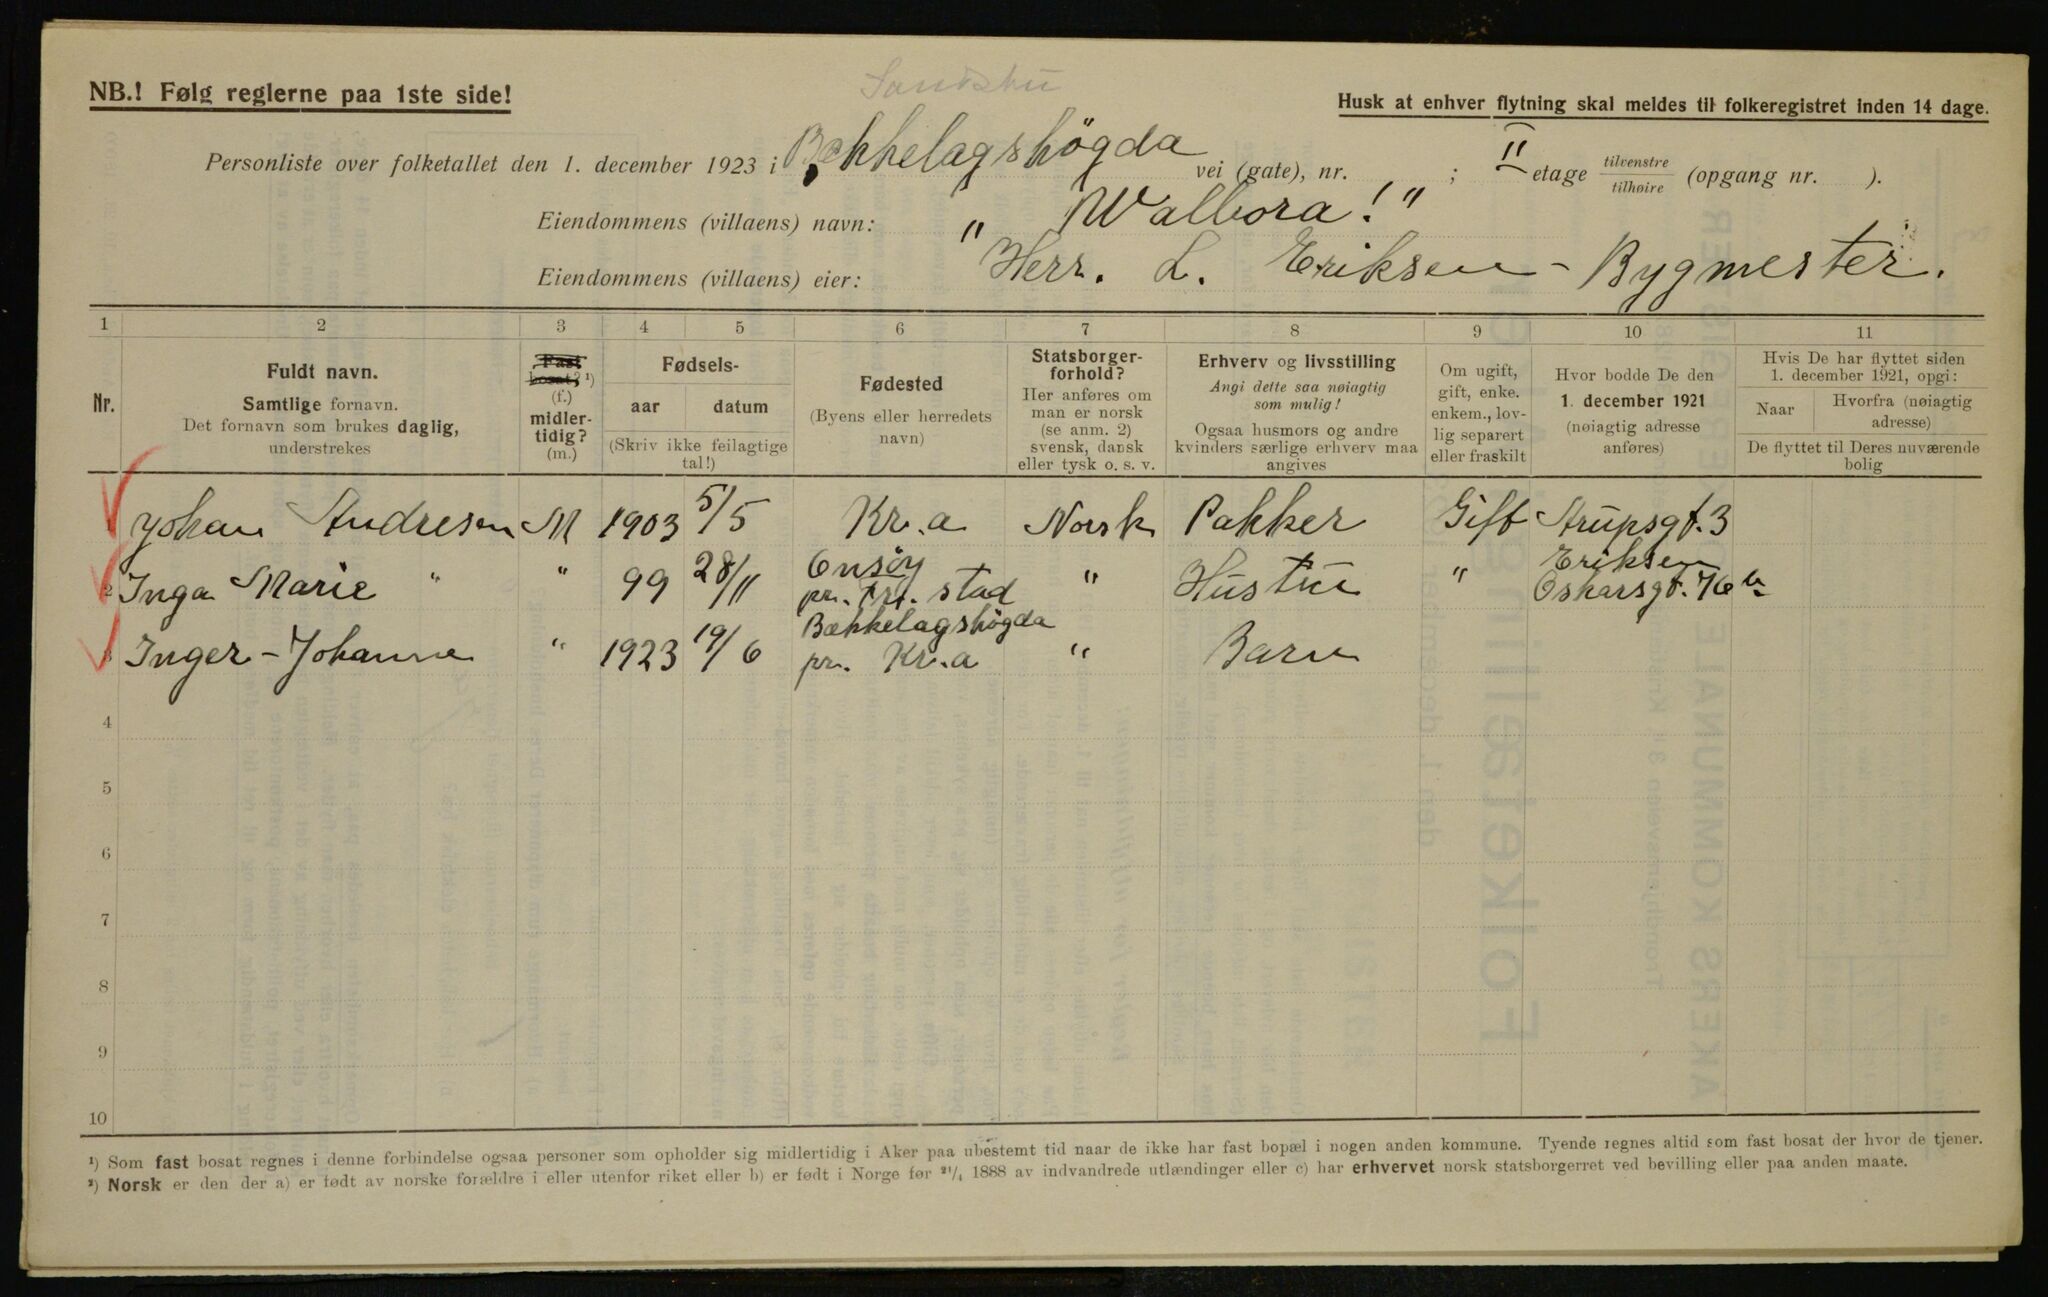 Sandstu
NB.! Følg reglerne paa 1ste side!
Husk at enhver flytning skal meldes til folkeregistret inden 14 dage.
Personliste over folketallet den 1. december 1923 i Bækkelagshögda vei (gate), nr. ; II etage tilvenstre/tilhøire (opgang nr. ).
Eiendommens (villaens) navn: „ Walbora!"
Eiendommens (villaens) eier: Herr. L. Eriksen - Bygmester.
1 2 3 4 5 6 7 8 9 10 11
Nr.
Fuldt navn.
Samtlige fornavn.
Det fornavn som brukes daglig,
understrekes
Fast
bosat? ¹)
(f.)
midler-
tidig?
(m.)
Fødsels-
aar datum
(Skriv ikke feilagtige
tal!)
Fødested
(Byens eller herredets
navn)
Statsborger-
forhold?
Her anføres om
man er norsk
(se anm. 2)
svensk, dansk
eller tysk o. s. v.
Erhverv og livsstilling
Angi dette saa nøiagtig
som mulig!
Ogsaa husmors og andre
kvinders særlige erhverv maa
angives
Om ugift,
gift, enke.
enkem., lov-
lig separert
eller fraskilt
Hvor bodde De den
1. december 1921
(nøiagtig adresse
anføres)
Hvis De har flyttet siden
1. december 1921, opgi:
Naar
Hvorfra (nøiagtig
adresse)
De flyttet til Deres nuværende
bolig
1 Johan Andresen M 1903 5/5 Kr.a Norsk Pakker Gift Strupsgt. 3
2 Inga Marie " " 99 28/11 Onsöy pr. Fr. stad " Hustru " Eriksen Oskarsgt. 76 b
3 Inger-Johanne " 1923 19/6 Bækkelagshögda pr. Kr.a " Barn
4
5
6
7
8
9
10
¹) Som fast bosat regnes i denne forbindelse ogsaa personer som opholder sig midlertidig i Aker paa ubestemt tid naar de ikke har fast bopæl i nogen anden kommune. Tyende regnes altid som fast bosat der hvor de tjener.
²) Norsk er den der a) er født av norske forældre i eller utenfor riket eller b) er født i Norge før 21/4 1888 av indvandrede utlændinger eller c) har erhvervet norsk statsborgerret ved bevilling eller paa anden maate.